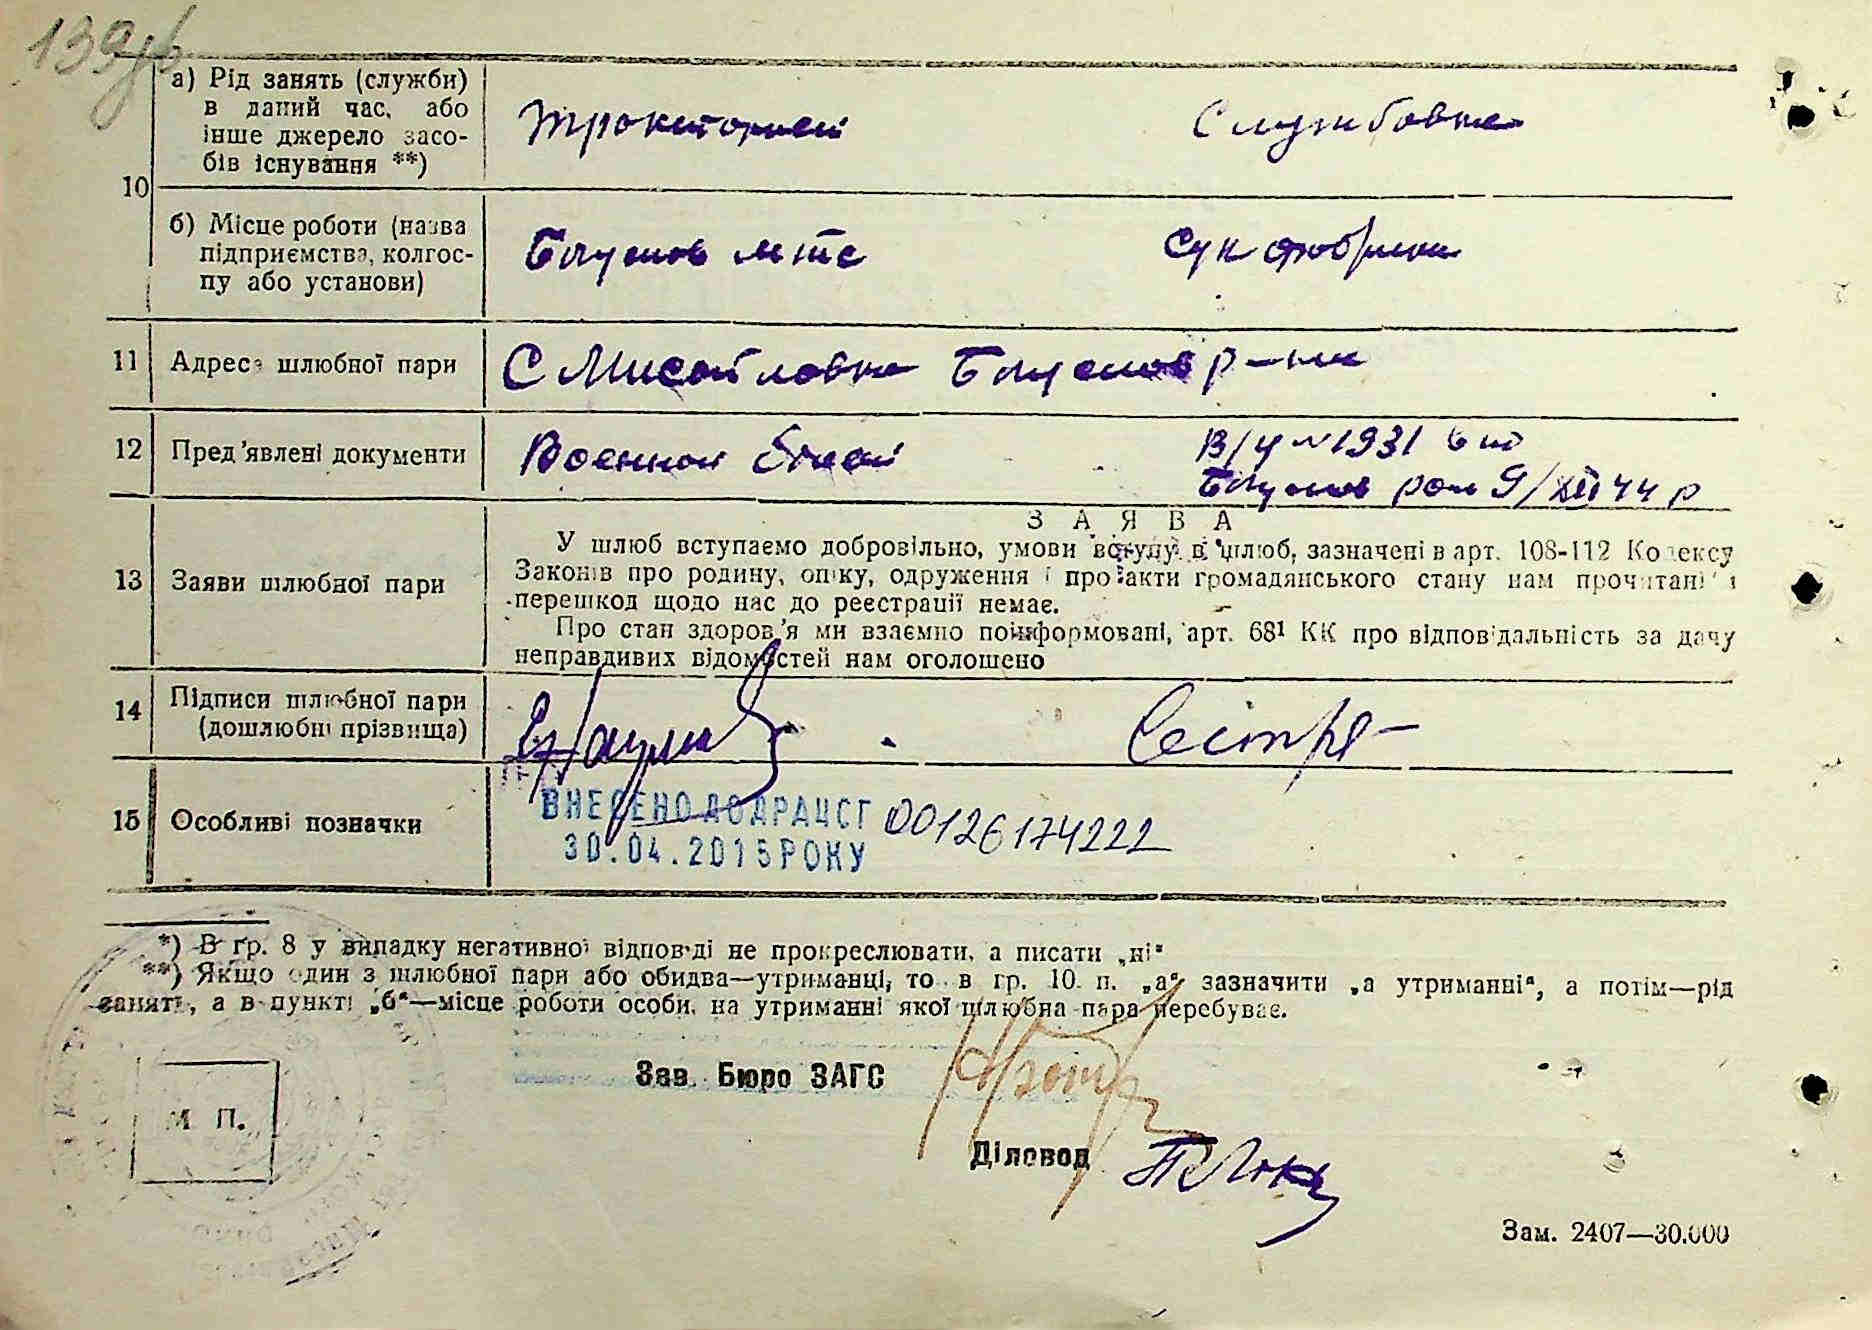 139
10
а) Рід занять (служби)
в даний час, або
інше джерело засо-
бів існування **)
Службовка
б) Місце роботи (назва
підприємства, колгос-
пу або установи)
Богуслав мтс
Сук фабрики
11 Адреса шлюбної пари
С Мисайловка Богуслав р-на
12 Пред'явлені документи
Военной билет
В/у № 1931
Богуслав ром 9/XII 44 р
13 Заяви шлюбної пари
ЗАЯВА
У шлюб вступаємо добровільно, умови вступу в шлюб, зазначені в арт. 108-112 Кодексу
Законів про родину, опіку, одруження і про акти громадянського стану нам прочитані і
перешкод щодо нас до реєстрації немає.
Про стан здоров'я ми взаємно поінформовані, арт. 68¹ КК про відповідальність за дачу
неправдивих відомостей нам оголошено
14 Підписи шлюбної пари
(дошлюбні прізвища)
15 Особливі позначки
ВНЕСЕНО ДО ДРАЦСГ 00126174222
30.04.2015 РОКУ
*) В гр. 8 у випадку негативної відповіді не прокреслювати, а писати „ні“
**) Якщо один з шлюбної пари або обидва—утриманці, то в гр. 10 п. „а“ зазначити „а утриманні“, а потім—рід
занять, а в пункті „б“—місце роботи особи, на утриманні якої шлюбна пара перебуває.
Зав. Бюро ЗАГС
М П.
Діловод
Зам. 2407—30.000